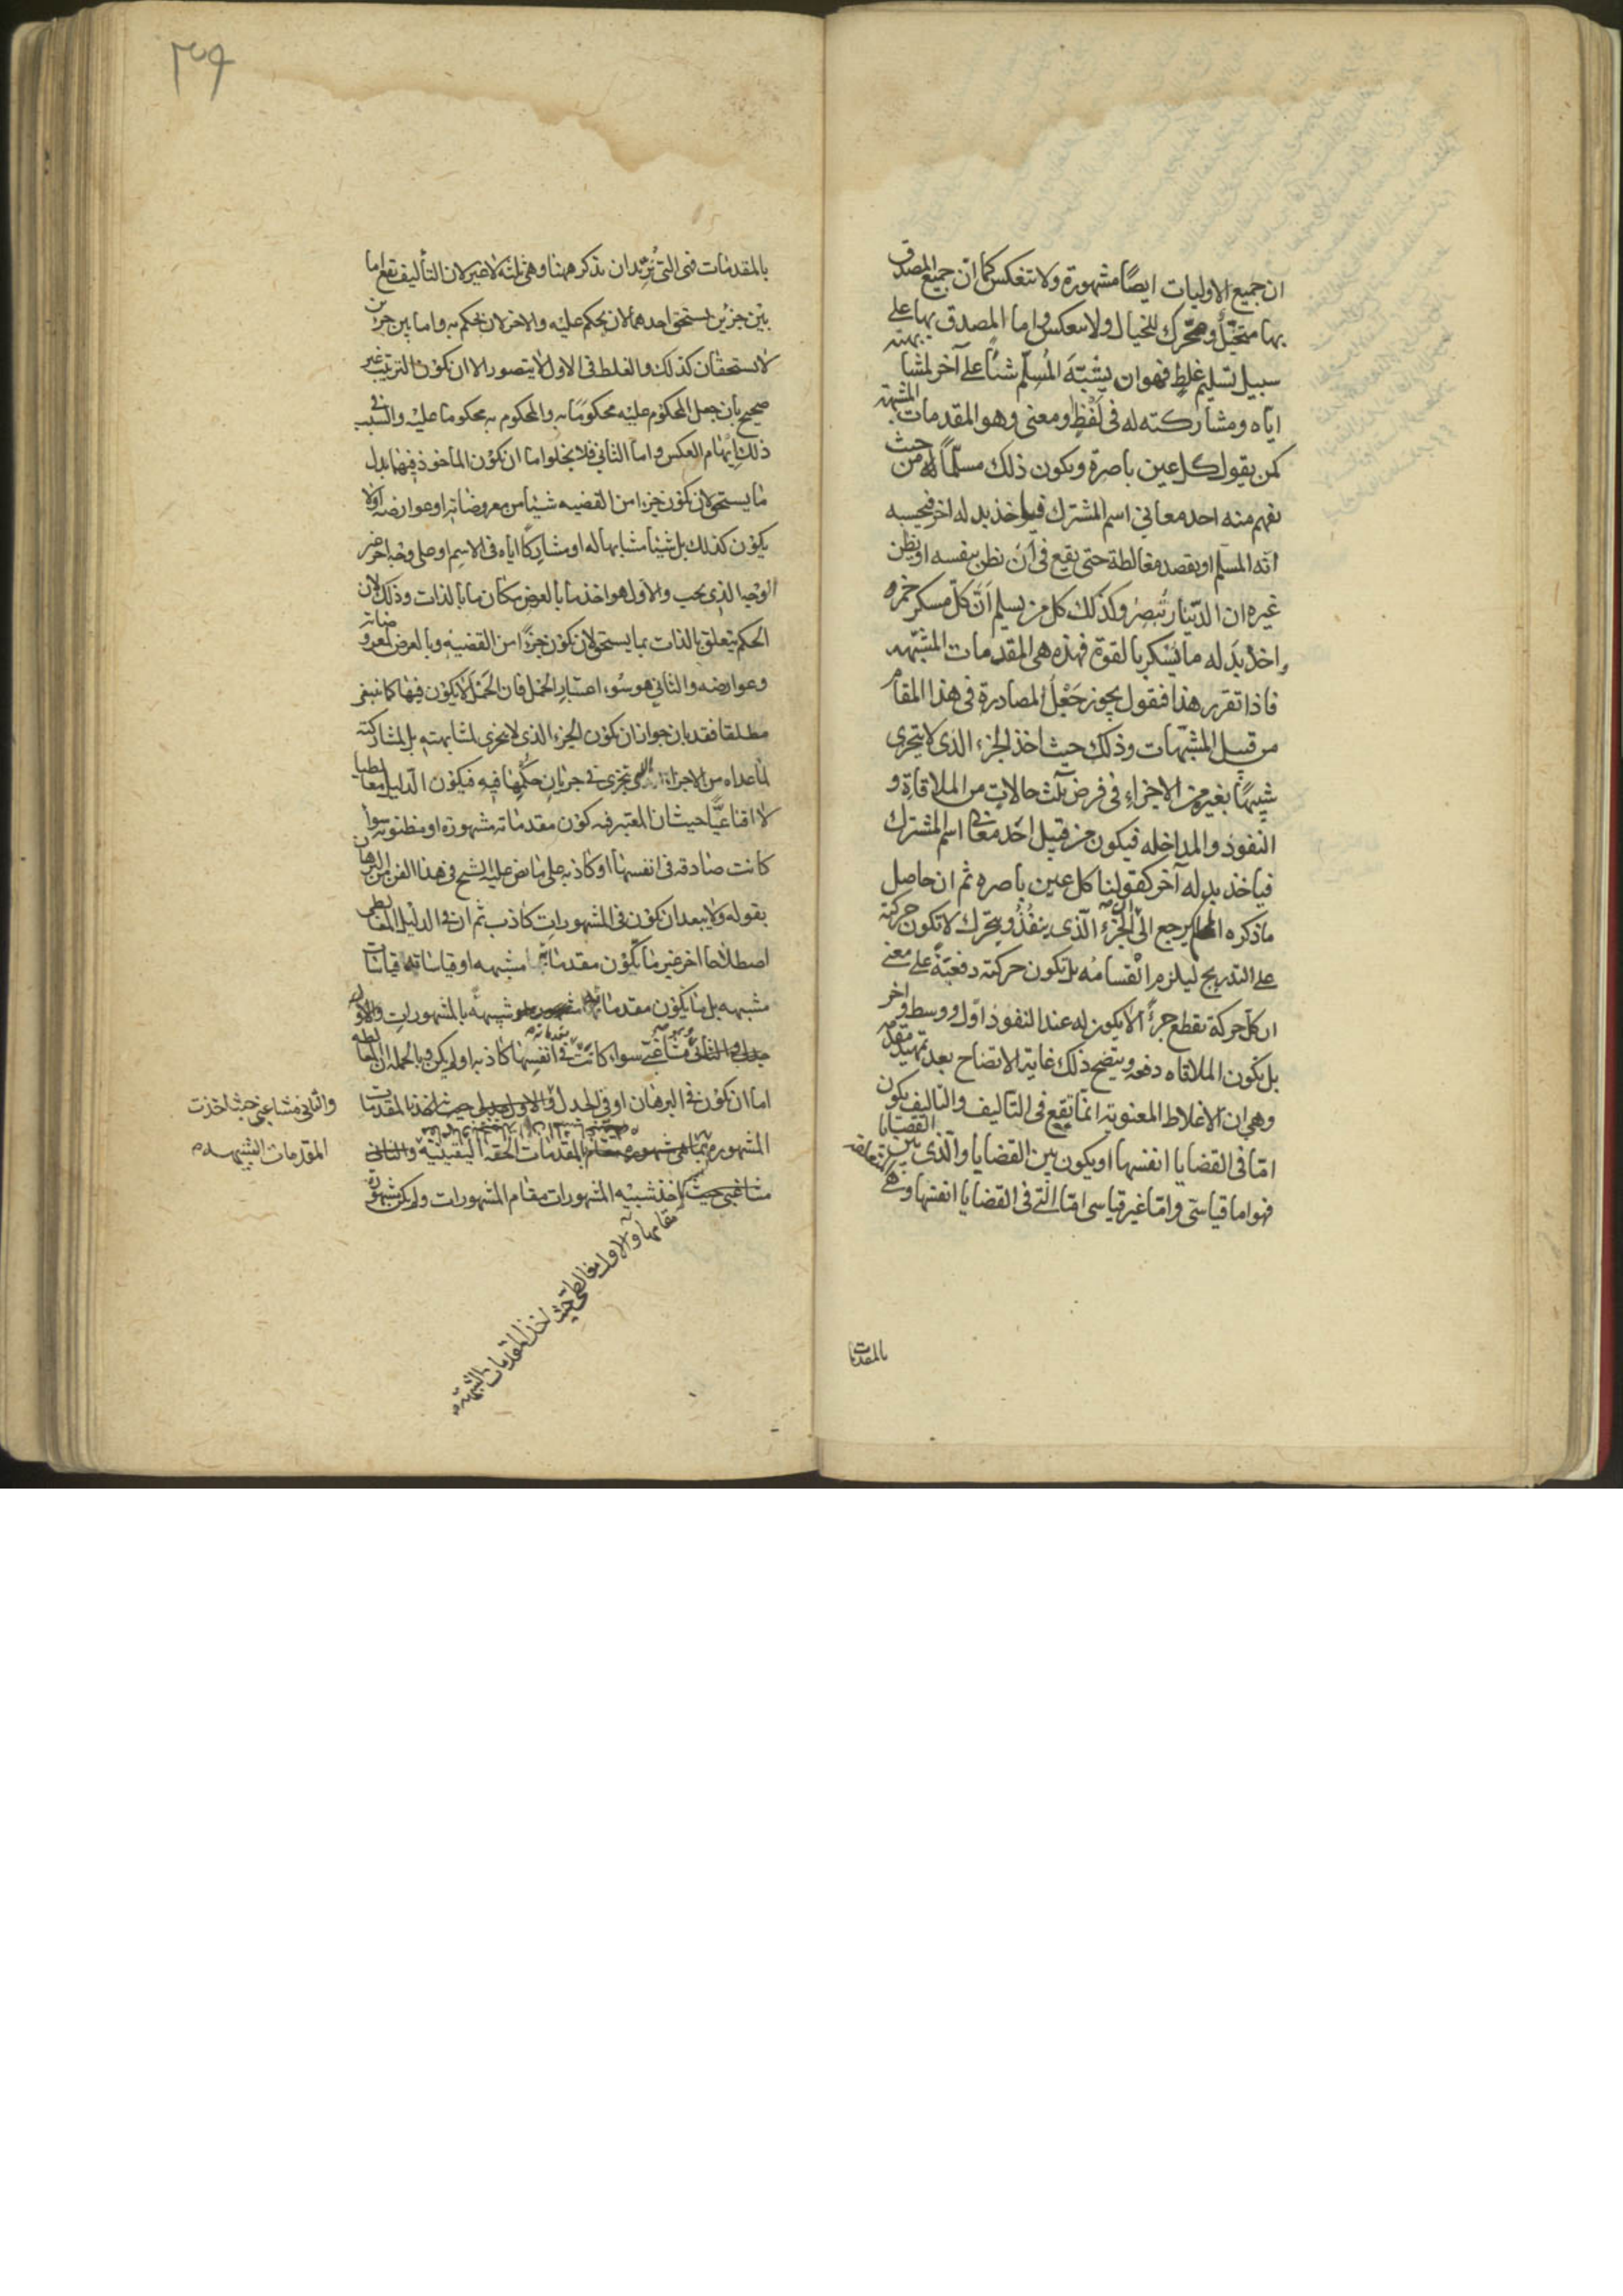 ان جميع الاوليات ايضًا مشهورة ولا تنعكس كما ان جميع المصدق
بها متخيّل ومحرّك للخيال ولا ينعكس واما المصدق بها على
سبيل تسليم غلط فهو ان يشبّه المُسلّم شيئًا على آخر لمشابهته
اياه ومشاركته له في لفظٍ ومعنى وهو المقدمات المشبهة
كمن يقول كل عين باصرة ويكون ذلك مسلّمًا له من حيث
يفهم منه احد معاني اسم المشترك فياخذ بدله اخر فيحسبه
انّه المسلّم او يقصد مغالطة حتى يقع في ان يظن بنفسه او يظن
غيره ان الدينار تُبصِر وكذلك كل من يسلم اَنّ كلّ مسكر خمر
واخذ بَدَله ما يُسْكر بالقوة فهذه هي المقدمات المشبّهه
فاذا تقرر هذا فنقول يجوز جَعْلُ المصادرة في هذا المقام
من قبيل المشبّهات وذلك حيث اخذ الجزء الذى لا يتجزى
شبيهًا بغيره من الاجزاء في فرض ثلث حالات من الملاقاة و
النفوذ والمداخله فيكون من قبيل احَد معانى اسم المشترك
فياخذ بدله آخر كقولنا كل عين باصره ثم ان حاصل
ما ذكره يرجع الى ان الجزء الّذى ينفُذُ ويتحرّك لا تكون حركته
على التدريج ليلزم انقسامُه بل تكون حركته دفعيّةً على معنى
ان كل حركة تقطع جزءً لا يكون له عند النفوذ اوّل ووسط واخر
بل يكون الملاقاه دفعه ويتضح ذلك غاية الاتضاح بعد تمهيد مقدمه
وهي ان الاغلاط المعنوية انما تقع في التأليف والتاليف يكون
امّا في القضايا انفسها او يكون بين القضايا والّذى بين القضايا
فهو اما قياسيّ وامّا غير قياسى امّا الّتي في القضايا انفسها وهي
بالمقدمات
٣٩
بالمقدمات فهى التى نريد ان نذكر ههنا وهى ثلثه لا غير لان التأليف يقع اما
بين جزئين يستحق احدهما لان يحكم عليه والاخر لان يحكم به واما بين جزئين
لا يستحقان كذلك والغلط فى الاول لا يتصور الا ان يكون الترتيب غير
صحيح بان جعل المحكوم عليه محكومًا به والمحكوم به محكوما عليه والسبب في
ذلك ايهام العكس واما الثاني فلا يخلوا اما ان يكون الماخوذ فيها بدل
ما يستحق لان يكون جزءا من القضيه شيئا من معروضاته او عوارضه او لا
يكون كذلك بل شيئا مشابها له او مشاركًا اياه فى الاسم او على وجه اخر غير
الوجه الذى يجب والاول هو اخذ ما بالعرض مكان ما بالذات وذلك لان
الحكم يتعلق بالذات بما يستحق لان يكون جزءًا من القضيه وبالعرض لمعروضاته
وعوارضه والثاني هو سُوء اعتبار الحمل فان الحمل لا يكون فيها كما ينبغى
مطلقا فقد بان جواز ان يكون الجزء الذى لا يتجزى لمشابهته بل لمشاركته
لما عداه من الاجزاء التى تتجزى فى جريان حكمها فيه فيكون الدليل مغالطيا
لا اقناعيًّا حيث ان المعتبر فيه كون مقدماته مشهوره او مظنونه سواء
كانت صادقه فى انفسها او كاذبه على ما نص عليه الشيخ فى هذا الفن من البرهان
بقوله ولا يبعد ان يكون فى المشهورات كاذب ثم ان فى الدليل المغالطى
اصطلاحا اخر غير ما يكون مقدماته مشبهه او قياساته قياسات
مشبهه بل ما يكون مقدماته شبيهه بالمشهورات والاول
سواء كانت مقدماته في انفسها كاذبه او لم يكن وبالجمله ان المغالطه
اما ان يكون فى البرهان او فى الجدل والاول حيث اخذ المقدمات
المشهوره بالمقدمات الحقه اليقينيه والثاني
مشاغبي حيث اخذ شبيه المشهورات مقام المشهورات ولم يكن مشهوره
مقامها والاول مغالطى حيث اخذ المقدمات الشبيهة
والثانى مشاغبي حيث اخذت
المقدمات الشبيهه